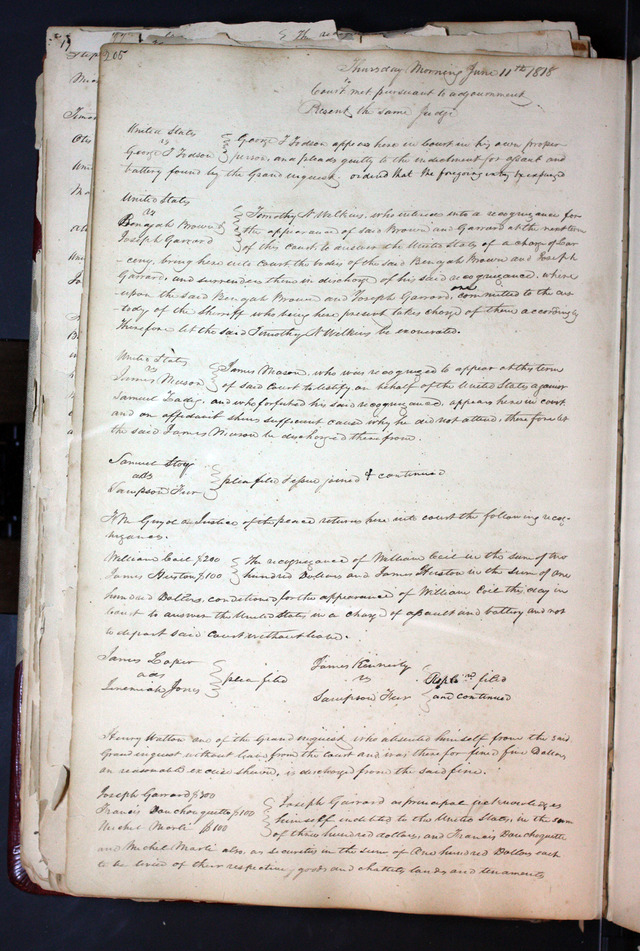 205
Thursday Morning June 11th 1818
Court met pursuant to adjournment
Present the same Judge
United States
vs
George T Todson
George T Todson appears here in Court in his own proper
person, and pleads guilty to the indictment for assault and
battery found by the Grand inquest. ordered that the foregoing entry be expunged
United States
vs
Benajah Brown
Joseph Garrard
Timothy N Wilkins, who entered into a recognizance for
the appearance of said Brown and Garrard at the next term
of this court, to answer the United States of a charge of Lar
-ceny, bring here into Court the bodies of the said Benajah Brown and Joseph
Garrard, and surrenders them in discharge of his said recognizance, where
upon the said Benajah Brown and Joseph Garrard, are committed to the cus
-tody of the Sheriff who being here present takes charge of them accordingly
Therefore let the said Timothy N Wilkins be exonerated.
United States
vs
James Mason
James Mason, who was recognized to appear at this term
of said Court to testify on behalf of the United States against
Samuel and who forfeited his said recognizance, appears here in court
and on affidavit shews sufficient cause why he did not attend, therefore let
the said James Mason be discharged therefrom.
Samuel Story
ads
Sampson
plea filed & continued
Guyol a Justice of the peace returns here into court the following recog-
nizances.
William Ceil $200
James Huston $100
The recognizance of William Ceil in the sum of two
hundred Dollars and James Huston in the sum of one
hundred Dollars, conditioned for the appearance of William Ceil this day in
court to answer the United States in a charge of assault and battery and not
to depart said court without leave.
James Loper
ads
Jeremiah Jones
plea filed
James Kennerly
vs
Sampson
Replcn filed
and continued
Henry Walton one of the Grand inquest, who absented himself from the said
Grand inquest without leave from the court and was therefor fined five Dollars,
on reasonable excuse shewn, is discharged from the said fine.
Joseph Garrard $300
Francis Dauchouquette $100
Michel Marli $100
Joseph Garrard as principal acknowledges
himself indebted to the United States, in the sum
of three hundred dollars, and Francis Dauchoquette
and Michel Marli also, as securities in the sum of One hundred Dollars each
to be levied of their respective, goods and chattels lands and tenements